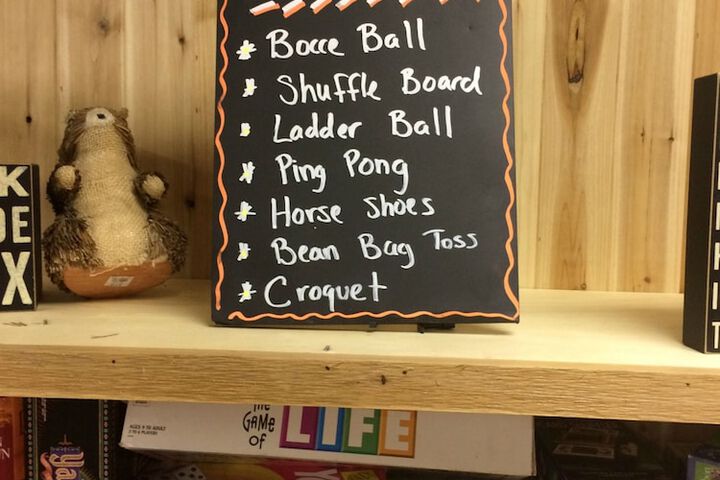 Bocce Ball
Shuffle Board
Ladder Ball
Ping Pong
Horse Shoes
Bean Bag Toss
Croquet
K
DE
X
T
THE
GAME
of
LIFE